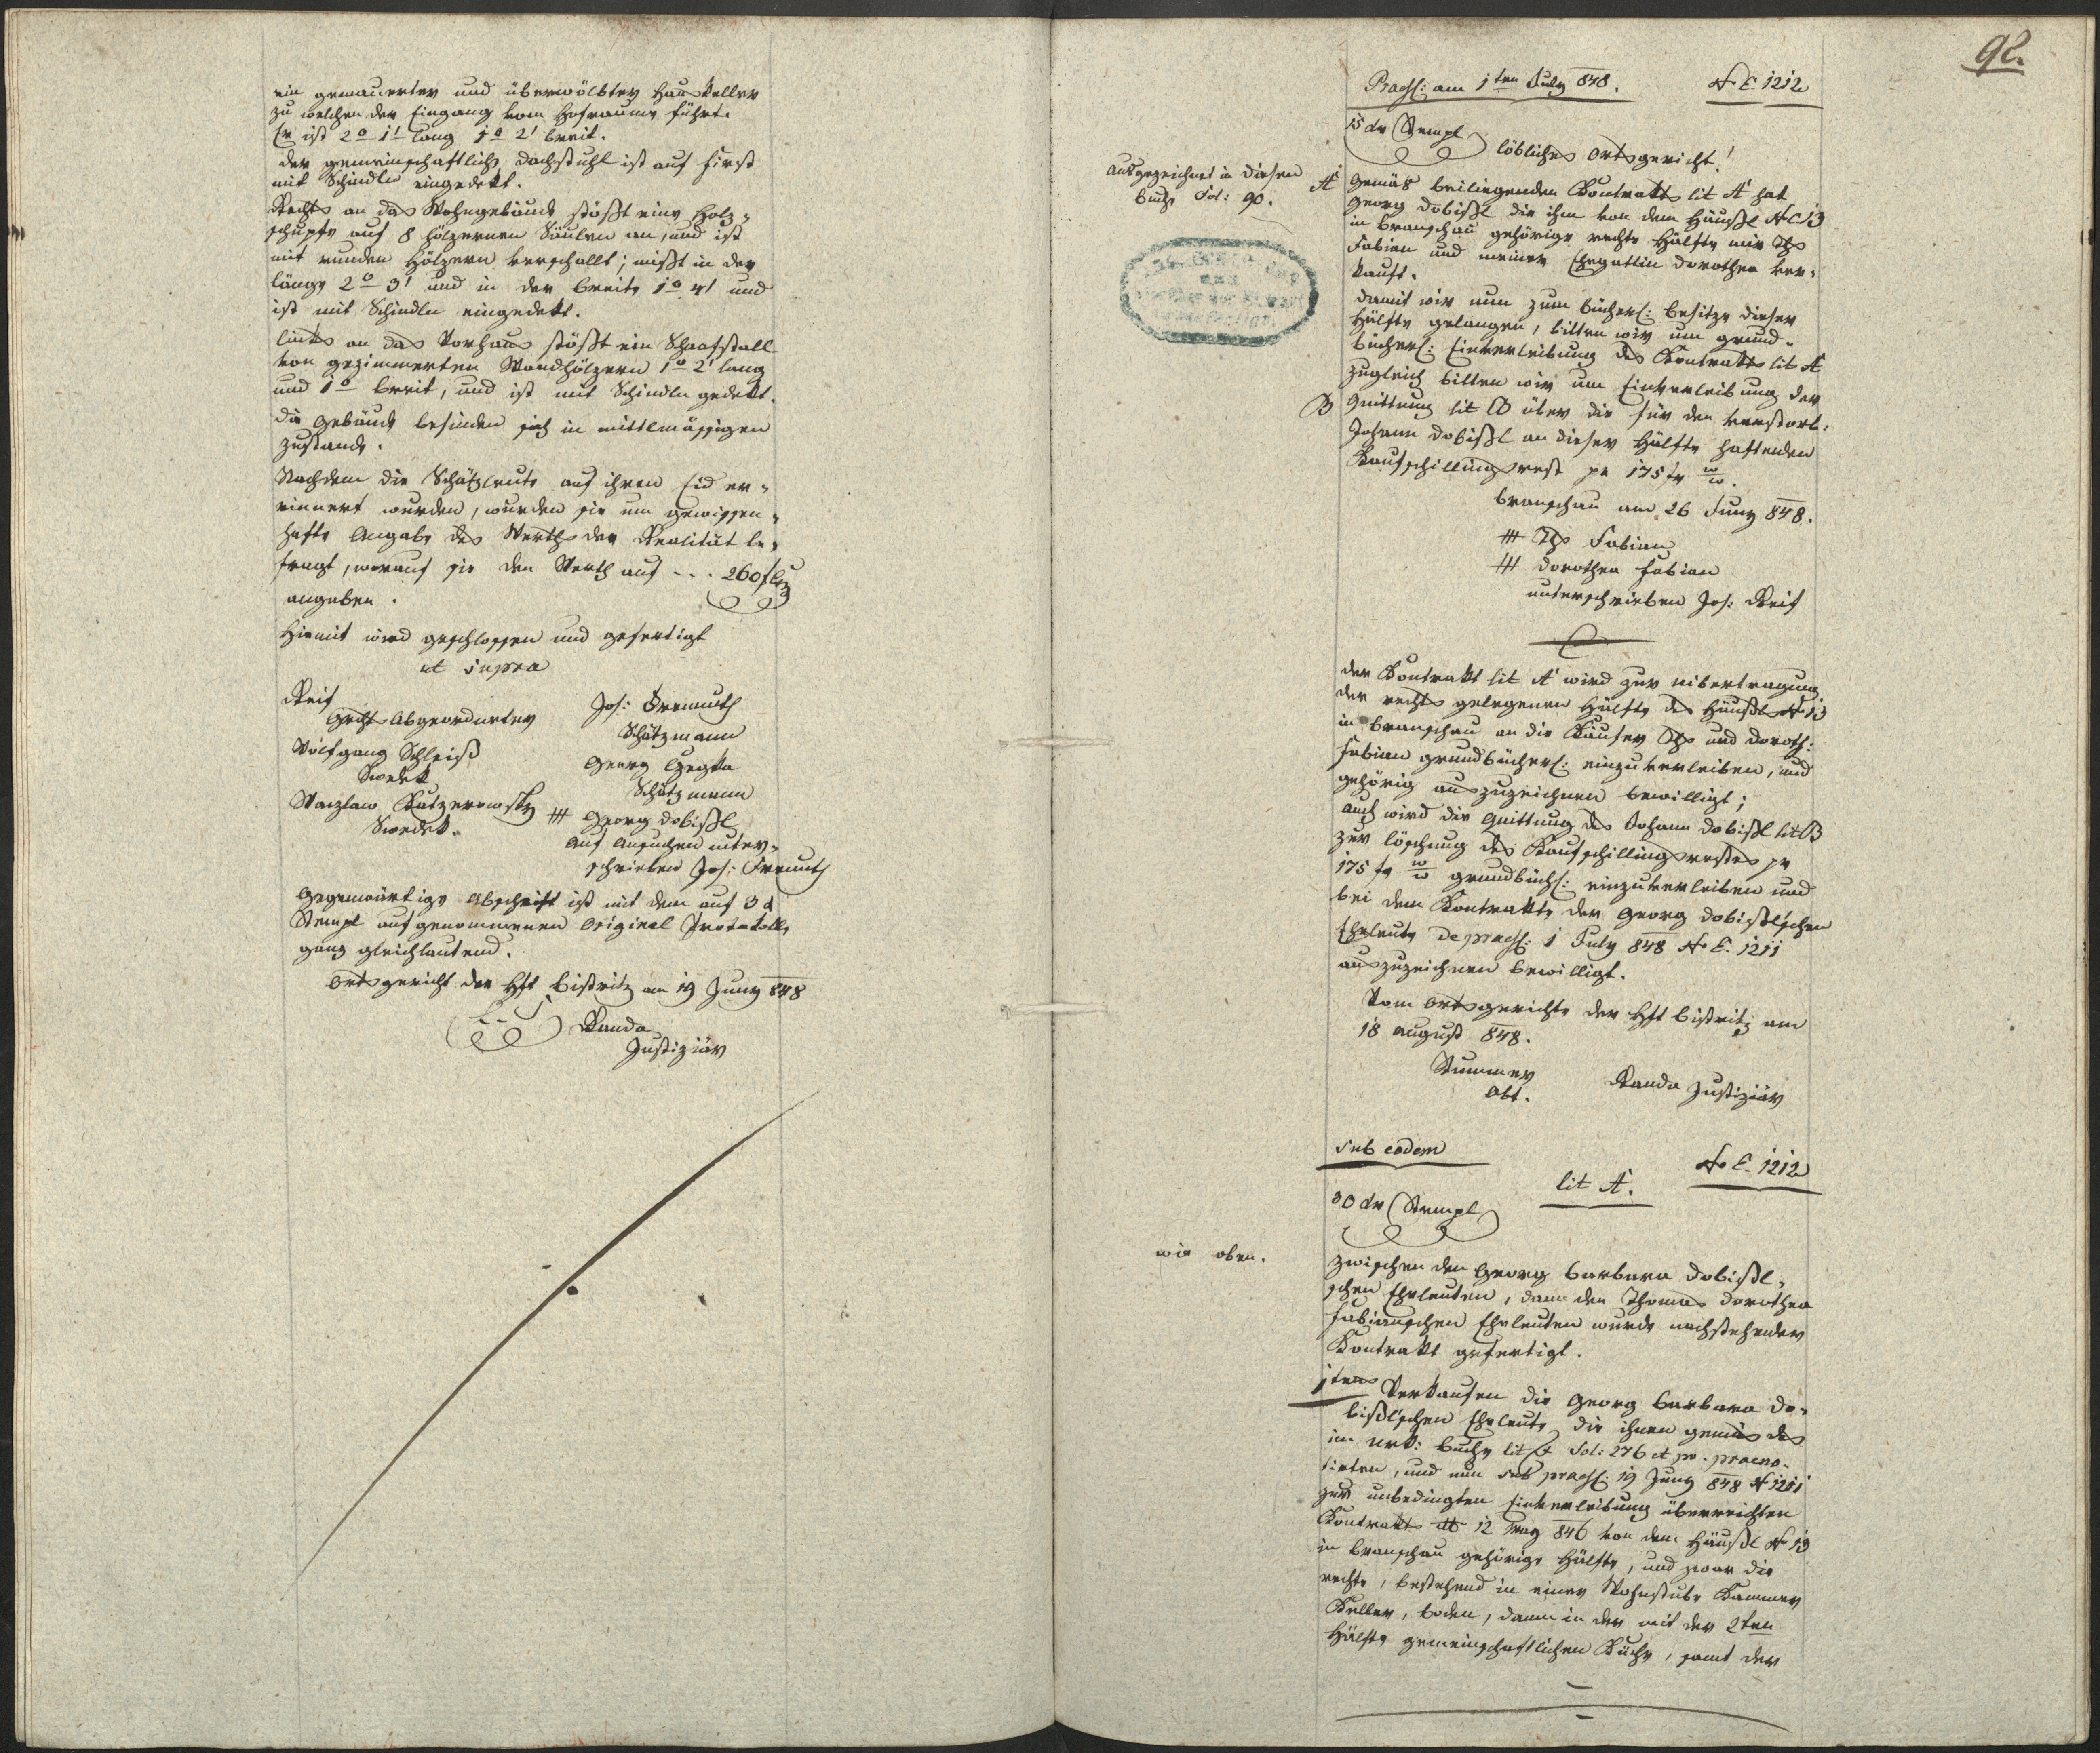 ein gemauerter und überwölbter Hauskeller
zu welchen der Eingang vom Hofraume führt.
Er ist 2° 1' lang 1° 2' breit.
Der gemeinschaftliche Dachstuhl ist auf First
mit Schindln eingedekt.
Rechts an das Wohngebäude stößt eine Holz-
schupfe auf 8 hölzernen Säulen an, und ist
mit runden Hölzern verschallt; mißt in der
Länge 2° 3' und in der Breite 1° 4' und
ist mit Schindln eingedekt.
Links an das Vorhaus stößt ein Schaafstall
von gezimmerten Wandhölzern 1° 2' lang
und 1° breit, und ist mit Schindln gedekt.
Die Gebäude befinden sich in mittlmässigen
Zustande.
Nachdem die Schätzleute auf ihren Eid er-
innert wurden, wurden sie um gewissen-
hafte Angabe des Werths der Realität be-
fragt, worauf sie den Werth auf . . . 260 f
angaben.
Hiemit wird geschlossen und gefertigt
ut supra
Reif
Gerichts Abgeordneter
Jos: Fremuth
Schätzmann
Wolfgang Schleiß
Swedek
Georg
Schätzmann
Wazlaw Kutzerowsky
Swedek.
+++ Georg Dobißl
auf Ansuchen unter-
schrieben Jos: Fremuth
Gegenwärtige Abschrift ist mit dem auf 3 d
Stempl aufgenommenen Original Protokolle
ganz gleichlautend.
Ortsgericht der Hft Bistritz am 19 Juny 848
Randa
Justiziär
92.
Praes: am 1ten July 848. N E. 1212
15 xr Stempl
Löbliches Ortsgericht!
Ausgezeichnet in diesen
Buche Fol: 90.
A
Gemäs beiliegenden Kontrakts lit A hat
Georg Dobißl die ihm von dem Häußl NC 13
in Branschau gehörige rechte Hälfte mir Ths
Fabian und meiner Ehegattin Dorothea ver-
kauft.
Damit wir nun zum bücherl: Besitze dieser
Hälfte gelangen, bitten wir um grund-
bücherl: Einverleibung des Kontrakts lit A
zugleich bitten wir um Einverleibung der
B Quittung lit B über die für den verstorb:
Johann Dobißl an dieser Hälfte haftenden
Kaufschillingsrest pr 175 fr w/w.
Branschau am 26 Juny 848.
+++ Ths Fabian
+++ Dorothea Fabian
unterschrieben Jos: Reif
Der Kontrakt lit A wird zur Uibertragung
der rechts gelegenen Hälfte des Häußls N 13
in Branschau an die Käufer Ths und Doroth:
Fabian grundbücherl: einzuverleiben, und
gehörig auszuzeichnen bewilligt;
auch wird die Quittung des Johann Dobißl lit B
zur Löschung des Kaufschillingsrestes pr
175 fr w/w grundbüch: einzuverleiben und
bei dem Kontrakte der Georg Dobißl'schen
Eheleute de praes: 1 July 848 N E. 1211
auszuzeichnen bewilligt.
Vom Ortsgerichte der Hft Bistritz am
18 August 848.
Stummer
Obt.
Randa Justiziär
sub eodem N E. 1212
lit A.
30 xr Stempl
wie oben.
Zwischen den Georg Barbara Dobißl-
schen Eheleuten, dann den Thomas Dorothea
Fabianschen Eheleuten wurde nachstehender
Kontrakt gefertigt.
1tens Verkaufen die Georg Barbara Do-
bißl'schen Eheleute die ihnen gemäs des
im Urk: Buche lit Fol: 276 et pr. praeno-
tirten, und nun sub praes: 19 Juny 848 N 1211
zur unbedingten Einverleibung überreichten
Kontrakts dto 12 May 846 von dem Häußl N 13
in Branschau gehörige Hälfte, und zwar die
rechte, bestehend in einer Wohnstube Kammer
Keller, Boden, dann in der mit der 2ten
Hälfte gemeinschaftlichen Küche, samt der